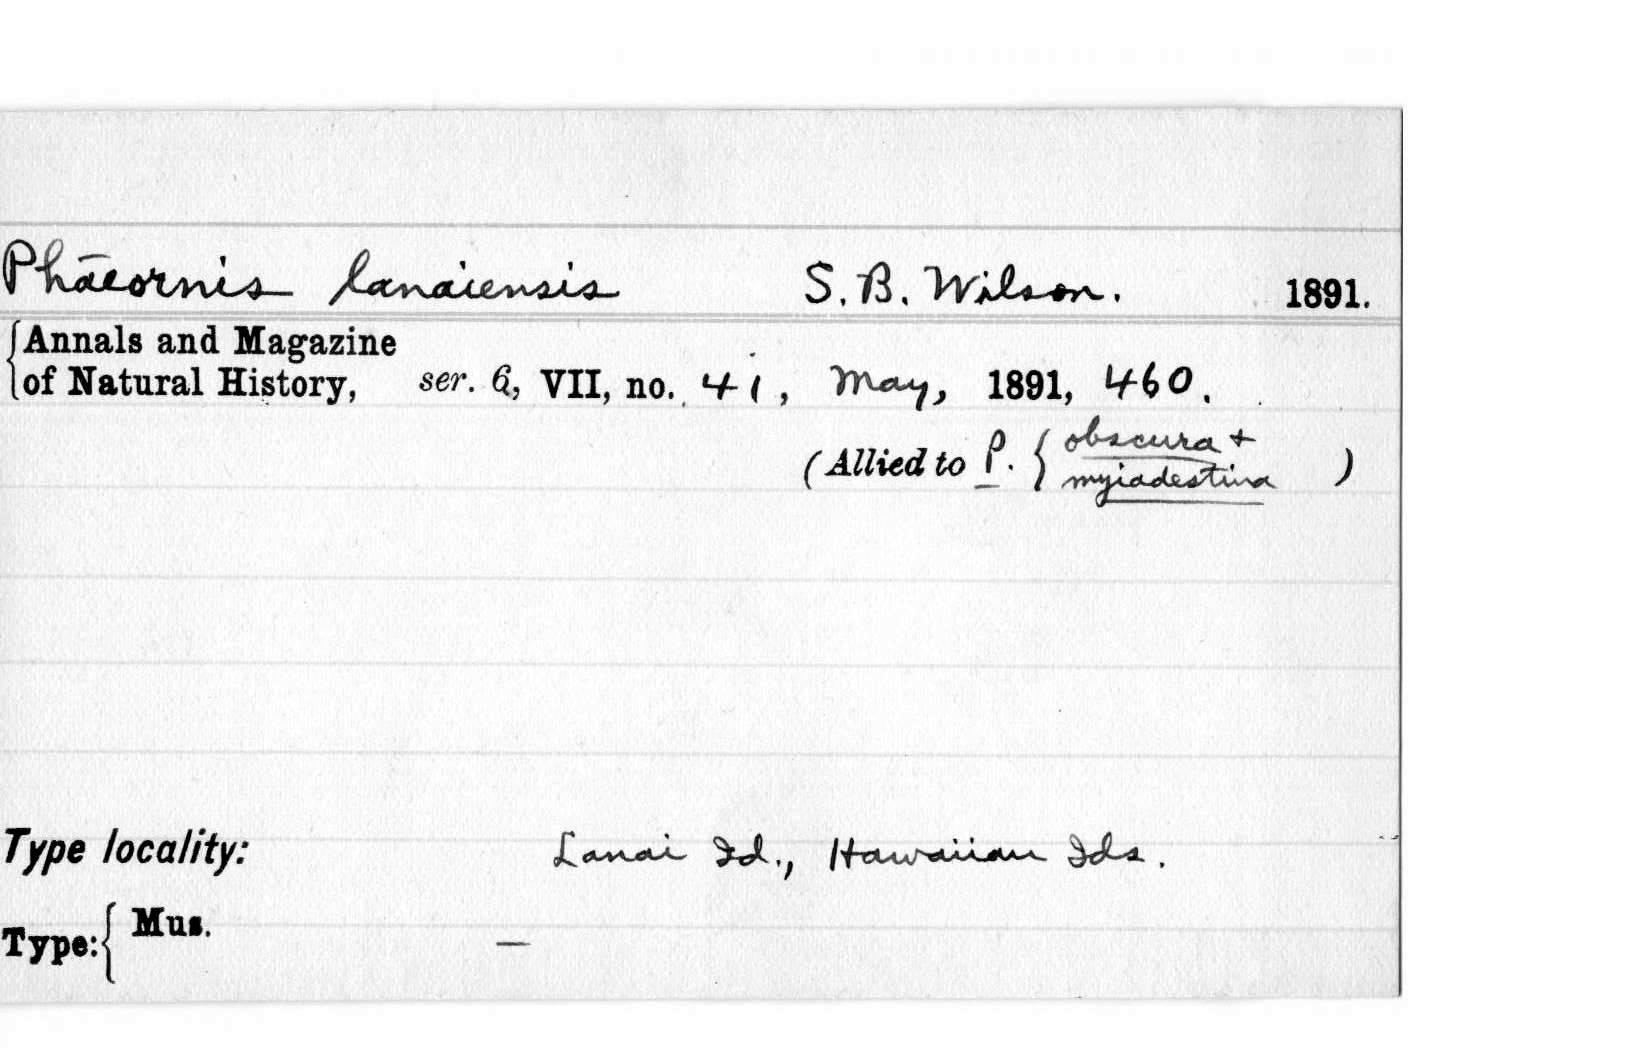 Phaeornis lanaiensis S. B. Wilson. 1891.
Annals and Magazine
of Natural History, ser. 6, VII, no. 41, May, 1891, 460.
(Allied to P. { obscura +
myiadestina )
Type locality: Lanai Id., Hawaiian Ids.
Type: { Mus. —